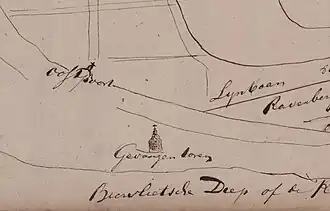 oostpoort
Lynbaan
Ravenberg
Gevangen toren
Biervlietsche Deep of de K